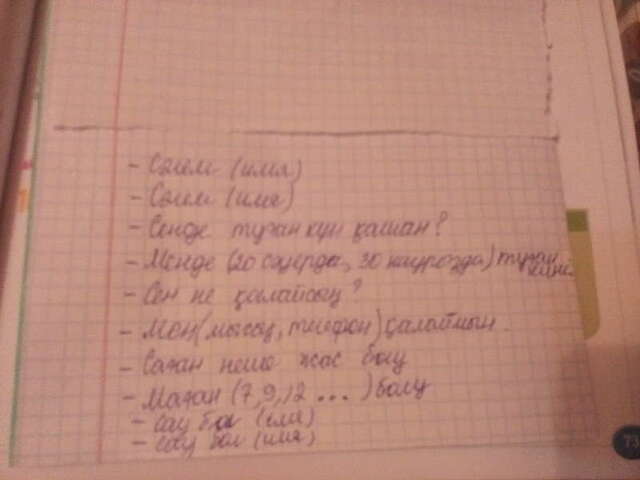 - Сәлем (имя)
- Сәлем (имя)
- Сенде туған күн қашан?
- Менде (20 сәуірда, 30 наурозда) туған күні
- Сен не қалайсың?
- Мен (мысық, тиефон) қалаймын.
- Саған неше жас болу
- Маған (7,9,12 ...) болу
- Сау бол (имя)
- Сау бол (имя)
73